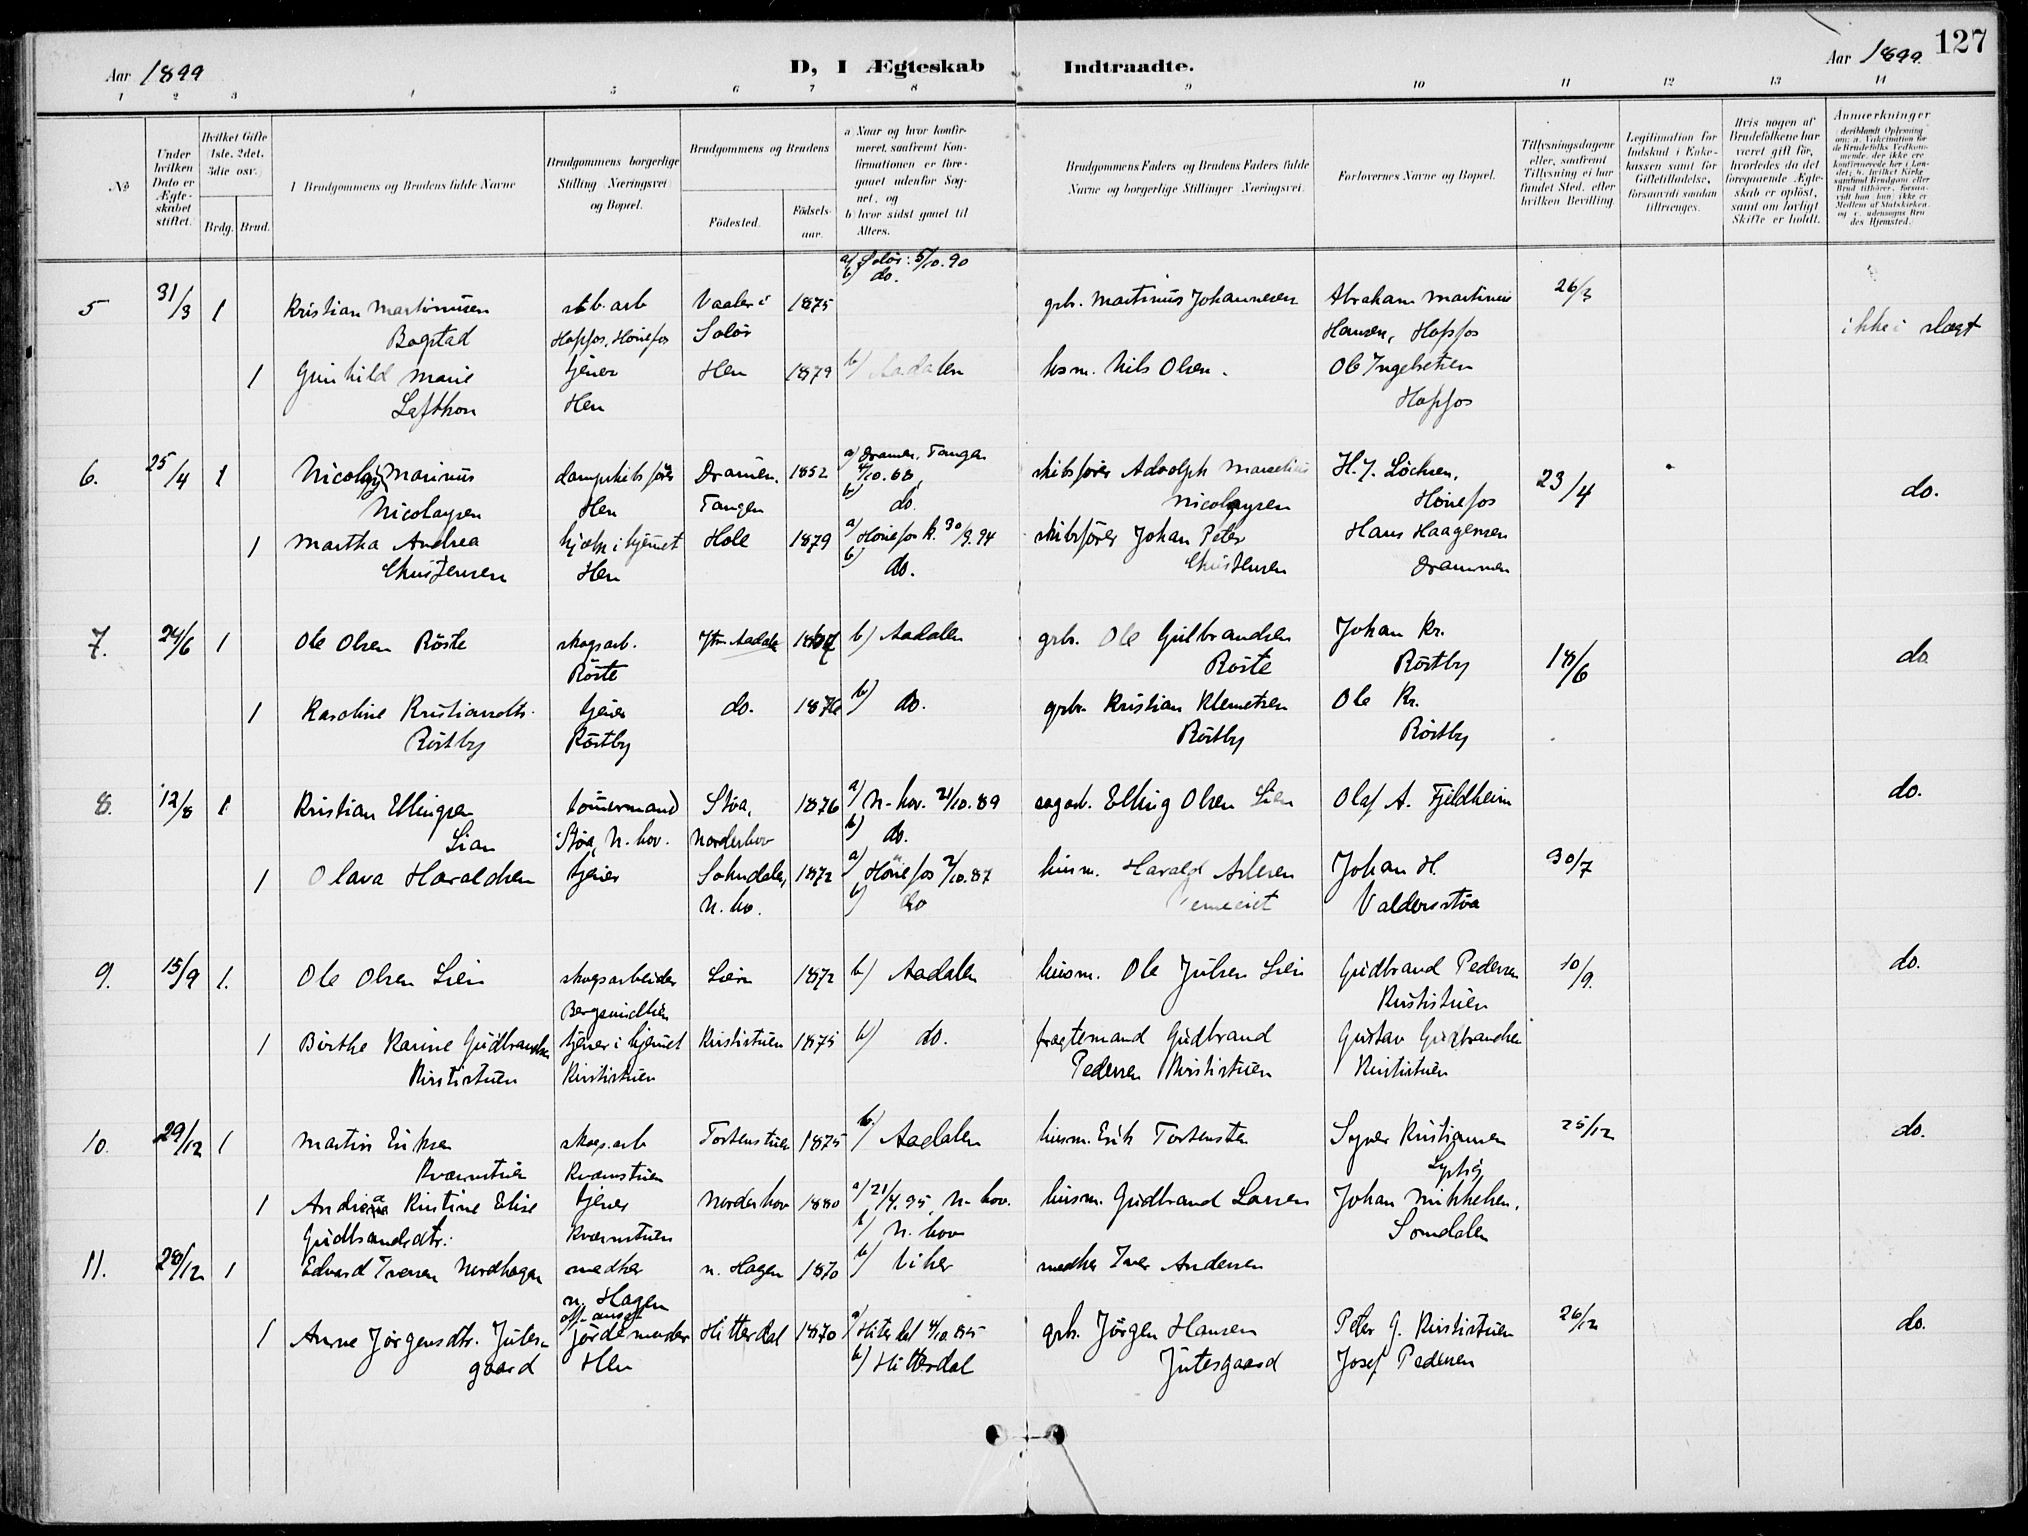 127
Aar 1899
D, I Ægteskab Indtraadte.
Aar 1899.
1 2 3 4 5 6 7 8 9 10 11 12 13 14
No
Under hvilken Dato er Ægteskabet stiftet.
Hvilket Gifte 1ste. 2det. 3die osv.
Brdg. Brud.
Brudgommens og Brudens fulde Navne
Brudgommens borgerlige Stilling (Næringsvei) og Bopæl.
Brudgommens og Brudens
Födested.
Födselsaar.
a Naar og hvor konfirmeret, saafremt Konfirmationen er foregaaet udenfor Sognet, og
b) hvor sidst gaaet til Alters.
Brudgommens Faders og Brudens Faders fulde Navne og borgerlige Stillinger (Næringsvei.
Forlovernes Navne og Bopæl.
Tillysningsdagene eller, saafremt Tillysning ei har fundet Sted, efter hvilken Bevilling.
Legitimation for Indskud i Enkekassen samt for Giftetilladelse, forsaavidt saadan tiltrænges.
Hvis nogen af Brudefolkene har været gift før, hvorledes da det foregaaende Ægteskab er opløst, samt om lovligt Skifte er holdt.
Anmærkninger
a) Solör: 5/10.90
b) do.
5 31/3 1 Kristian Martinusen arb. Vaaler i 1875 grb. Martinus Johannesen Abraham Martinus 26/3
Bagstad Hofsfos, Hönefos Solör Hansen, Hofsfos ikke i slægt
1 Gunhild Marie tjener Hen 1879 b) Aadalen husm. Nils Olsen. Ole Ingebretsen
Lafthon Hen Hofsfos
6. 25/4 1 Nicolay Marinus dampskibsförer Dramen, 1852 a) Dramen, Tangen 4/10.68 skibsförer Adolph Marselius H. J. Löchsen, 23/4
Nicolaysen Hen Tangen b) do. Nicolaysen Hönefos do.
1 Martha Andrea hjælp i hjemet Hole 1879 a) Hönefos k. 30/9.94 skibsförer Johan Peter Hans Haagensen
Christensen Hen b) do. Christensen Drammen
7. 24/6 1 Ole Olsen Röste skogsarb. Ytre Aadalen b) Aadalen grb. Ole Gulbrandsen Johan Kr. 18/6 do.
Röste Röste Röstby
1 Karoline Kristiansdtr. tjener do. 1876 b) do. grb. Kristian Klemetsen Ole Kr.
Röstby Röstby Röstby Röstby
8. 12/8 1 Kristian Ellingsen tömermand Stöa, 1876 a) N-hov. 2/10.89 sagarb. Elling Olsen Lien Olaf A. Fjeldheim do.
Lian Stöa, N. hov. Norderhov b) do.
1 Olava Haraldsen tjener Sohndalen, 1872 a) Hönefos 2/10.87 husm. Harald Johan H. 30/7
N. hov. b) do Valdersstöa
9. 15/9 1. Ole Olsen Lien skogsarbeider Lien 1872 b) Aadalen husm. Ole Julsen Lien Gudbrand Pedersen 10/9. do.
Bergsundlien Kirstistuen
1 Birthe Karine Gudbrandsen tjener i hjemet Kirstistuen 1875 b) do. fragtemand Gudbrand Gustav Gudbrandsen
Kirstistuen Kirstistuen Pedersen Kirstistuen Kirstistuen
10. 29/12 1 Martin Eriksen skogsarb Tostenstuen 1875 b) Aadalen husm. Erik Tostensten Syver Kristiansen 25/12 do.
Kværnstuen Kværnstuen
1 Andrea Kristine Elise tjener Norderhov 1880 a) 21/4.95, N-hov. husm. Gudbrand Larsen Johan Mikkelsen,
Gudbrandsdtr: Kværnstuen b) N. hov Somdalen
11. 28/12 1 Edvard Iversen Nordhagen smedker n. Hagen 1870 b) Viker smedker Iver Andersen
n. Hagen
off. ansat
1 Anne Jörgensdtr. Jutes- jordemoder Hitterdal 1870 a) Hiterdal 4/10.85 grb. Jörgen Hansen Peter G. Kirstistuen 26/12 do.
gaard Hen b) Hitterdal Jutesgaard Josef Pedersen